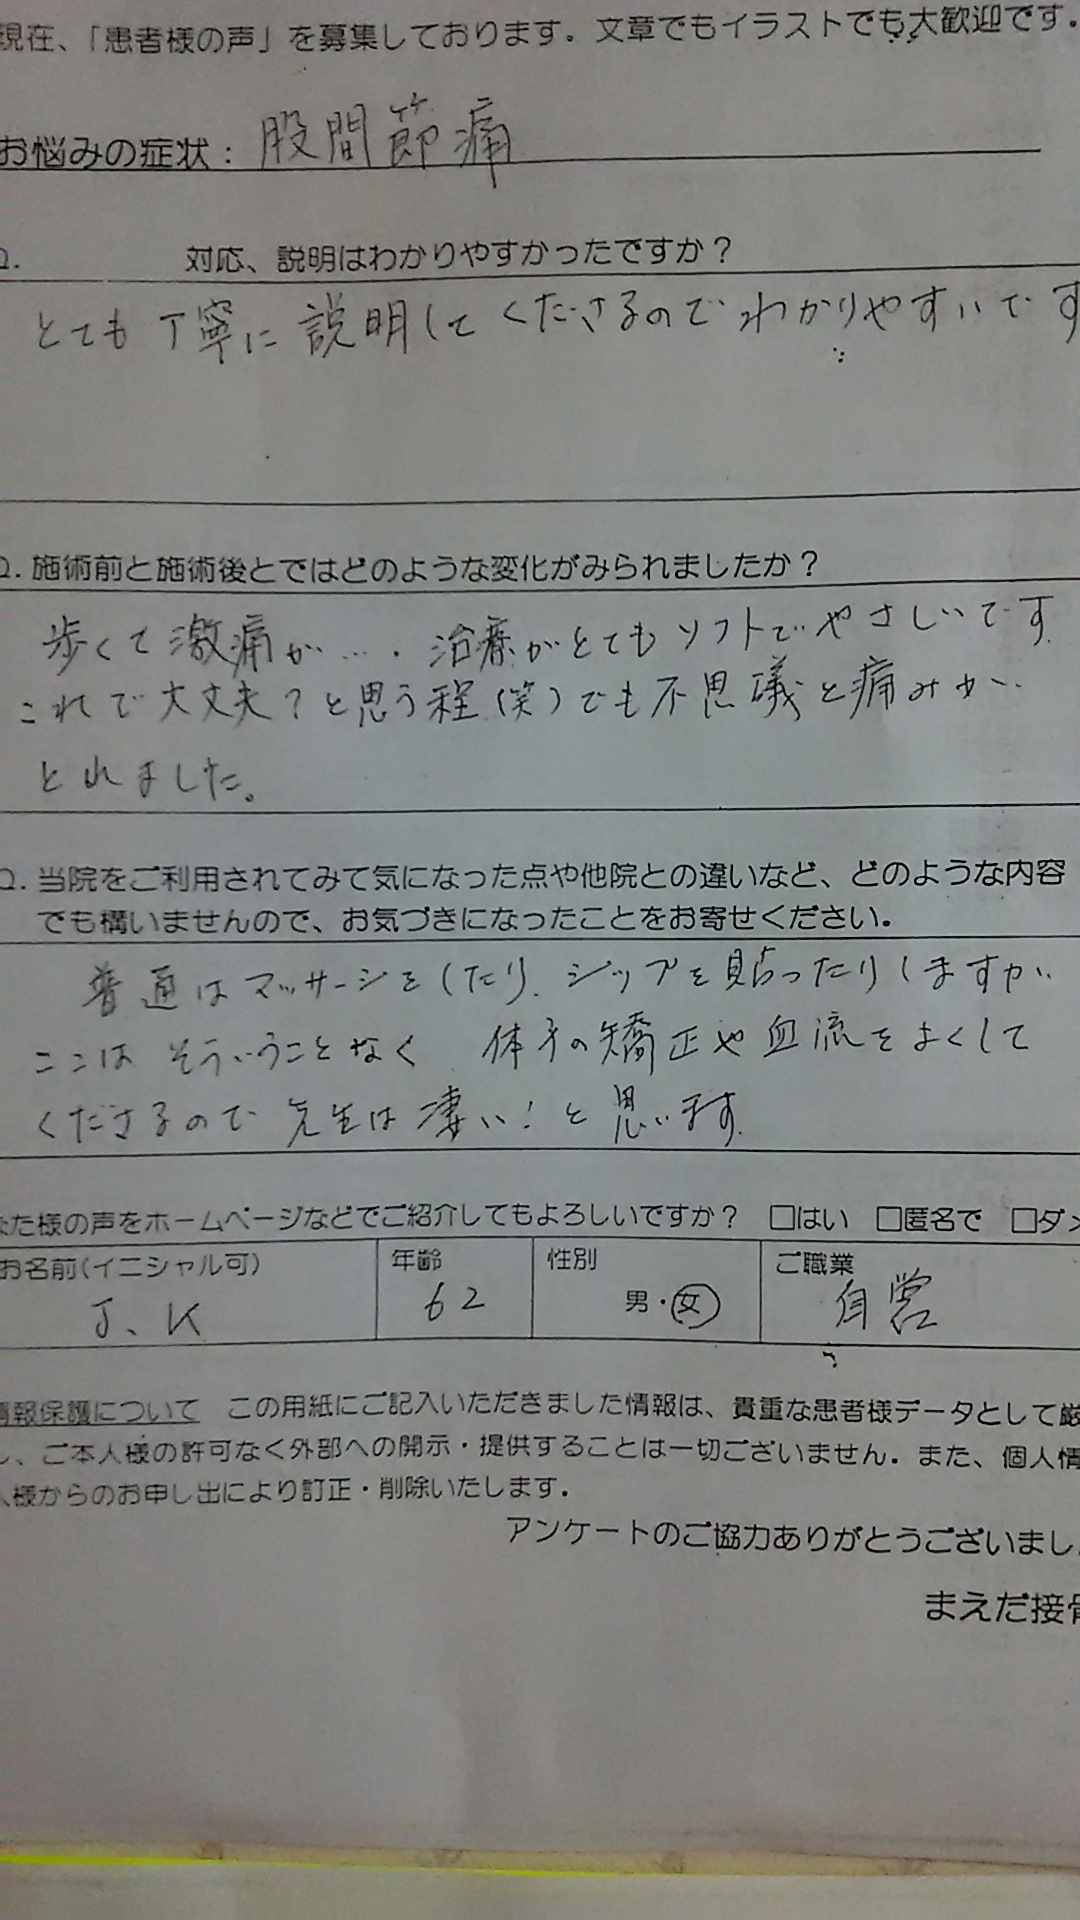 現在、「患者様の声」を募集しております。文章でもイラストでも大歓迎です。
お悩みの症状：股間節痛
Q. 対応、説明はわかりやすかったですか？
とても丁寧に説明してくださるのでわかりやすいです
Q. 施術前と施術後とではどのような変化がみられましたか？
歩くて激痛が…. 治療がとてもソフトでやさしいです.
これで大丈夫？と思う程（笑）でも不思議と痛みが
とれました。
Q. 当院をご利用されてみて気になった点や他院との違いなど、どのような内容
でも構いませんので、お気づきになったことをお寄せください。
普通はマッサージをしたり、シップを貼ったりしますが、
ここは そういうことなく 体子の矯正や血流をよくして
くださるので 先生は凄い！と思います.
た様の声をホームページなどでご紹介してもよろしいですか？ □はい □匿名で □ダメ
お名前（イニシャル可） 年齢 性別 ご職業
J、K 62 男・女 自営
情報保護について この用紙にご記入いただきました情報は、貴重な患者様データとして厳
し、ご本人様の許可なく外部への開示・提供することは一切ございません。また、個人情
人様からのお申し出により訂正・削除いたします。
アンケートのご協力ありがとうございまし
まえだ接骨